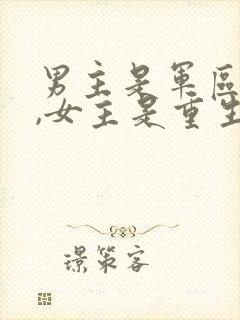 男主是军区
,女主是重生
璟策客